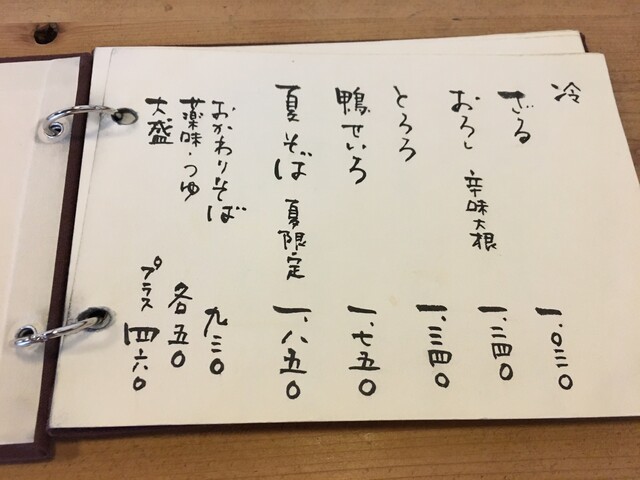 冷
ざる 一、〇三〇
おろし 辛味大根 一、二四〇
とろろ 一、三四〇
鴨せいろ 一、七五〇
夏そば 夏限定 一、八五〇
おかわりそば 九三〇
薬味・つゆ 各五〇
大盛 プラス四六〇